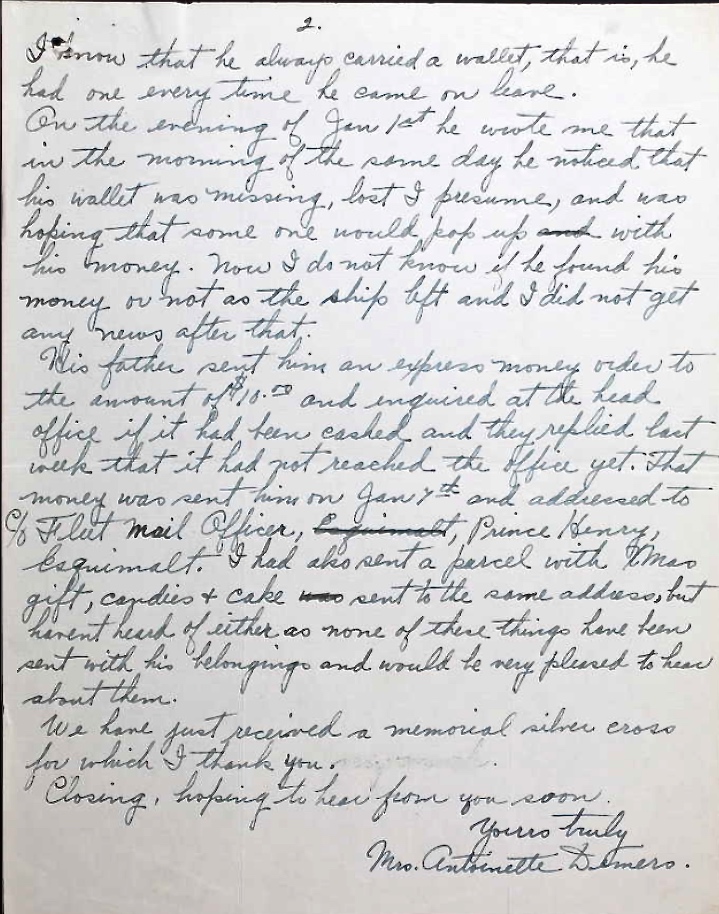 2.
I know that he always carried a wallet, that is, he
had one every time he came on leave.
On the evening of Jan 1st he wrote me that
in the morning of the same day he noticed that
his wallet was missing, lost I presume, and was
hoping that some one would pop up and with
his money. Now I do not know if he found his
money or not as the ship left and I did not get
any news after that.
His father sent him an express money order to
the amount of $10.00 and enquired at the head
office if it had been cashed and they replied last
week that it had not reached the office yet. That
money was sent him on Jan 7th and addressed to
C/o Fleet Mail Officer, Esquimalt, Prince Henry,
Esquimalt. I had also sent a parcel with Xmas
gift, candies & cake was sent to the same address, but
havent heard of either as none of these things have been
sent with his belongings and would be very pleased to hear
about them.
We have just received a memorial silver cross
for which I thank you.
Closing, hoping to hear from you soon.
Yours truly
Mrs. Antoinette Demers.